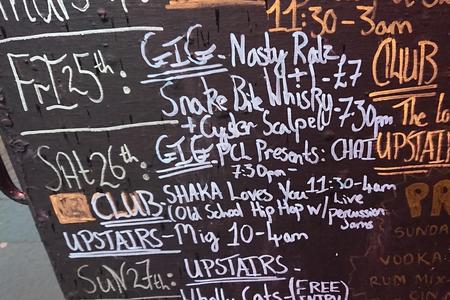 11:30-3am
FRI 25th: GIG- Nasty Ratz
+ - £7
Snake Bite Whisky - 7:30pm
+ Cyster Scalpel
SAT 26th: GIG- PCL Presents: CHAI
7:30pm-
CLUB- SHAKA Loves You 11:30-4am
(Old School Hip Hop w/ Live percussion Jams
UPSTAIRS- Mig 10-4am
SUN 27th: UPSTAIRS-
Cats (FREE ENTRY)
CLUB
The
UPSTAIR
PR
SUNDA
VODKA
RUM MIX